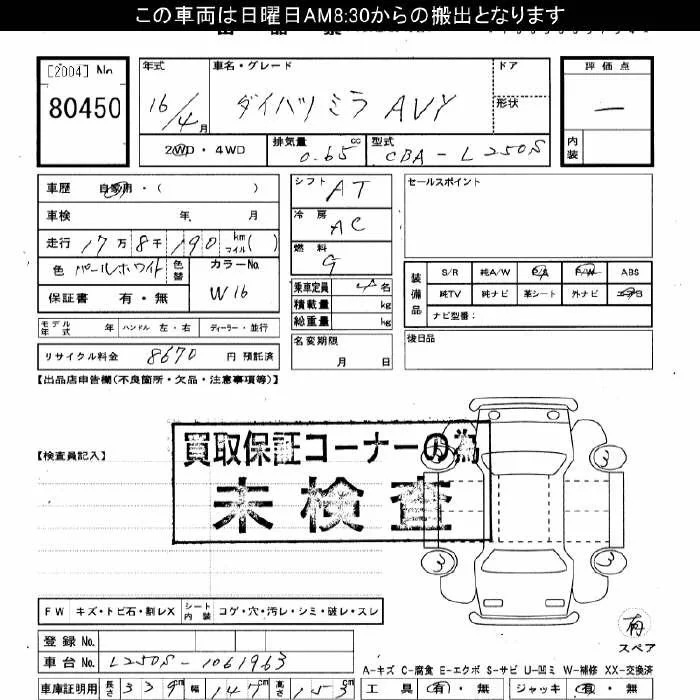 この車両は日曜日AM8:30からの搬出となります
[2004] No
80450
年式 16/4月
車名・グレード ダイハツ ミラ AVY
ドア
形状
評価点 —
内装
2WD・4WD
排気量 0.65 cc
型式 CBA-L250S
車歴 自家用・( )
車検 年 月
走行 17万8千190 km マイル( )
色 パールホワイト 色替 カラーNo. W16
保証書 有・無
シフト AT
冷房 AC
燃料 G
乗車定員 4名
積載量 kg
総重量 kg
セールスポイント
装備品 S/R 純A/W P/S P/W ABS
純TV 純ナビ 革シート 外ナビ エアB
ナビ型番:
モデル年式 年 ハンドル 左・右 ディーラー・並行
名変期限 月 日
後日品
リサイクル料金 8670 円 預託済
【出品店申告欄(不良箇所・欠品・注意事項等)】
【検査員記入】
買取保証コーナーの為
未検査
3 3
3 3
FW キズ・トビ石・割レX シート内装 コゲ・穴・汚レ・シミ・破レ・スレ
有
スペア
登録 No.
車台 No. L250S-1061963
A-キズ C-腐食 E-エクボ S-サビ U-凹ミ W-補修 XX-交換済
車庫証明用 長さ 339cm 幅 147cm 高さ 153cm
工具 有・無 ジャッキ 有・無